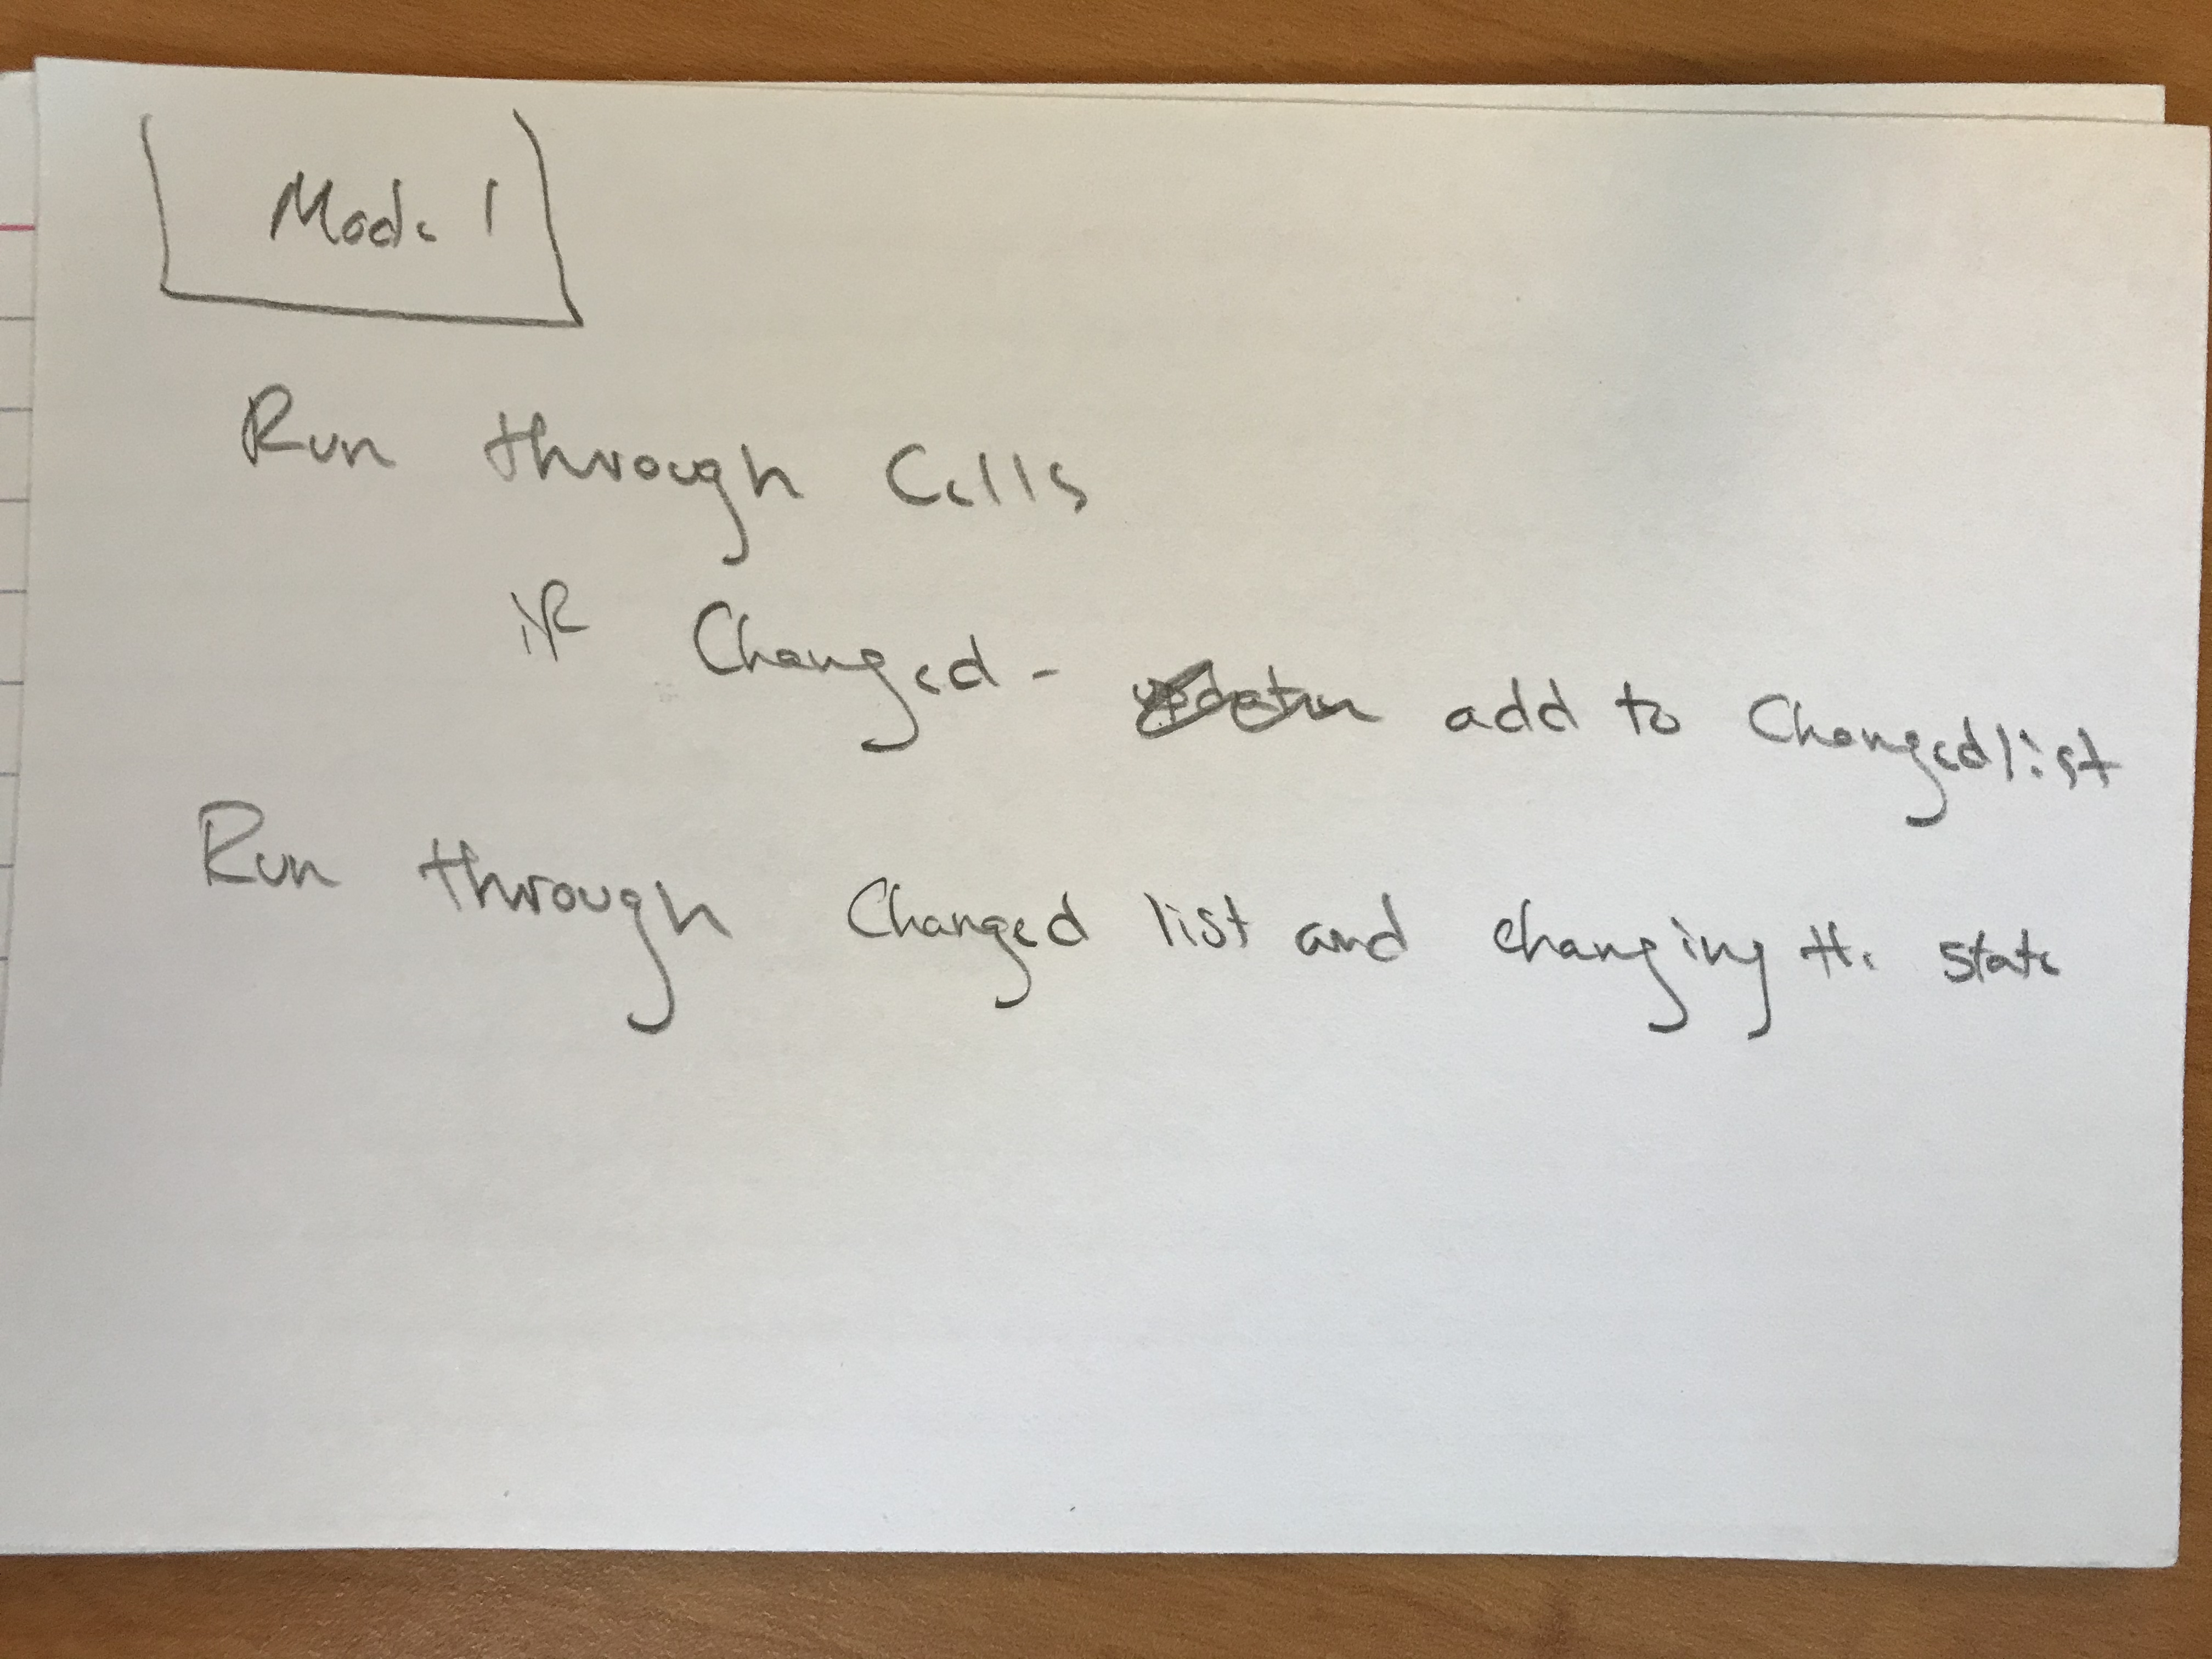 Model
Run through Cells
if Changed - add to Changedlist
Run through Changed list and changing the state